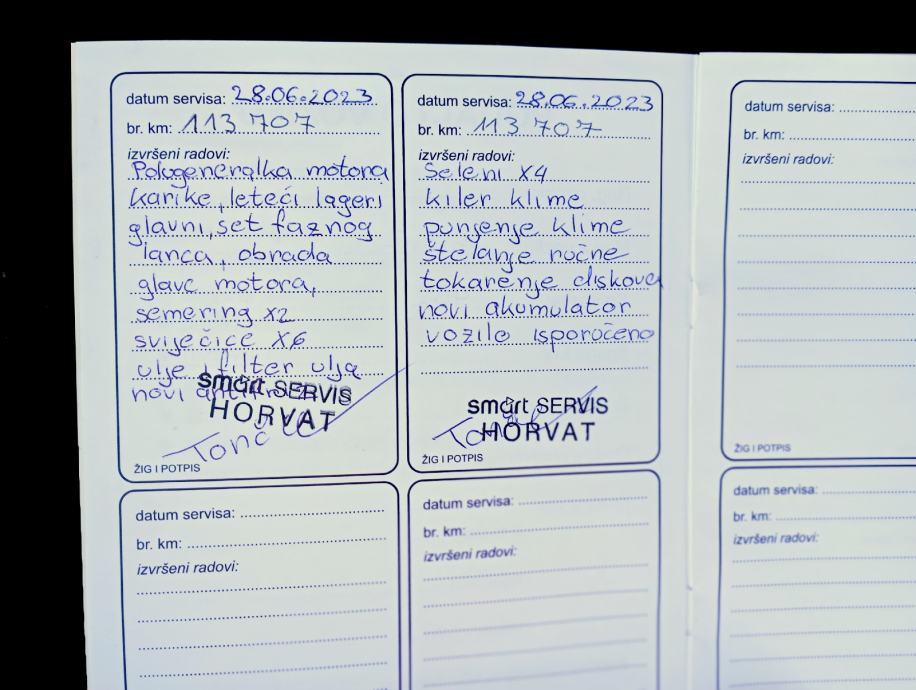 datum servisa: 28.06.2023
br. km: 113 707
izvršeni radovi:
Polugeneralka motora
karike, leteći lageri
glavni, set faznog
lanca, obrada
glave motora,
semering x2
svijećice x6
ulje i filter ulja
novi
smart SERVIS
HORVAT
ŽIG I POTPIS
datum servisa: 28.06.2023
br. km: 113 707
izvršeni radovi:
Seleni x4
kiler klime
punjenje klime
štelanje ručne
tokarenje diskova
novi akumulator
vozilo isporučeno
smart SERVIS
HORVAT
ŽIG I POTPIS
datum servisa:
br. km:
izvršeni radovi:
ŽIG I POTPIS
datum servisa:
br. km:
izvršeni radovi:
datum servisa:
br. km:
izvršeni radovi:
datum servisa:
br. km:
izvršeni radovi: